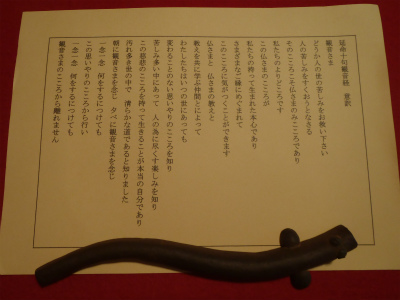 延命十句観音経　意訳
観音さま
どうか人の世の苦しみをお救い下さい
人の苦しみをすくおうとなさる
そのこころこそ仏さまのみこころであり
私たちのよりどころです
この仏さまのこころが
私たちの持って生まれた本心であり
さまざまなご縁にめぐまれて
このこころに気がつくことができます
仏さまと　仏さまの教えと
教えを共に学ぶ仲間とによって
わたしたちはいつの世にあっても
変わることのない思いやりのこころを知り
苦しみ多い中にあって　人の為に尽くす楽しみを知り
この慈悲のこころを持って生きることが本当の自分であり
汚れ多き世の中で　清らかな道であると知りました
朝に観音さまを念じ　夕べに観音さまを念じ
一念一念　何をするにつけても
この思いやりのこころから行い
一念一念　何をするにつけても
観音さまのこころから離れません